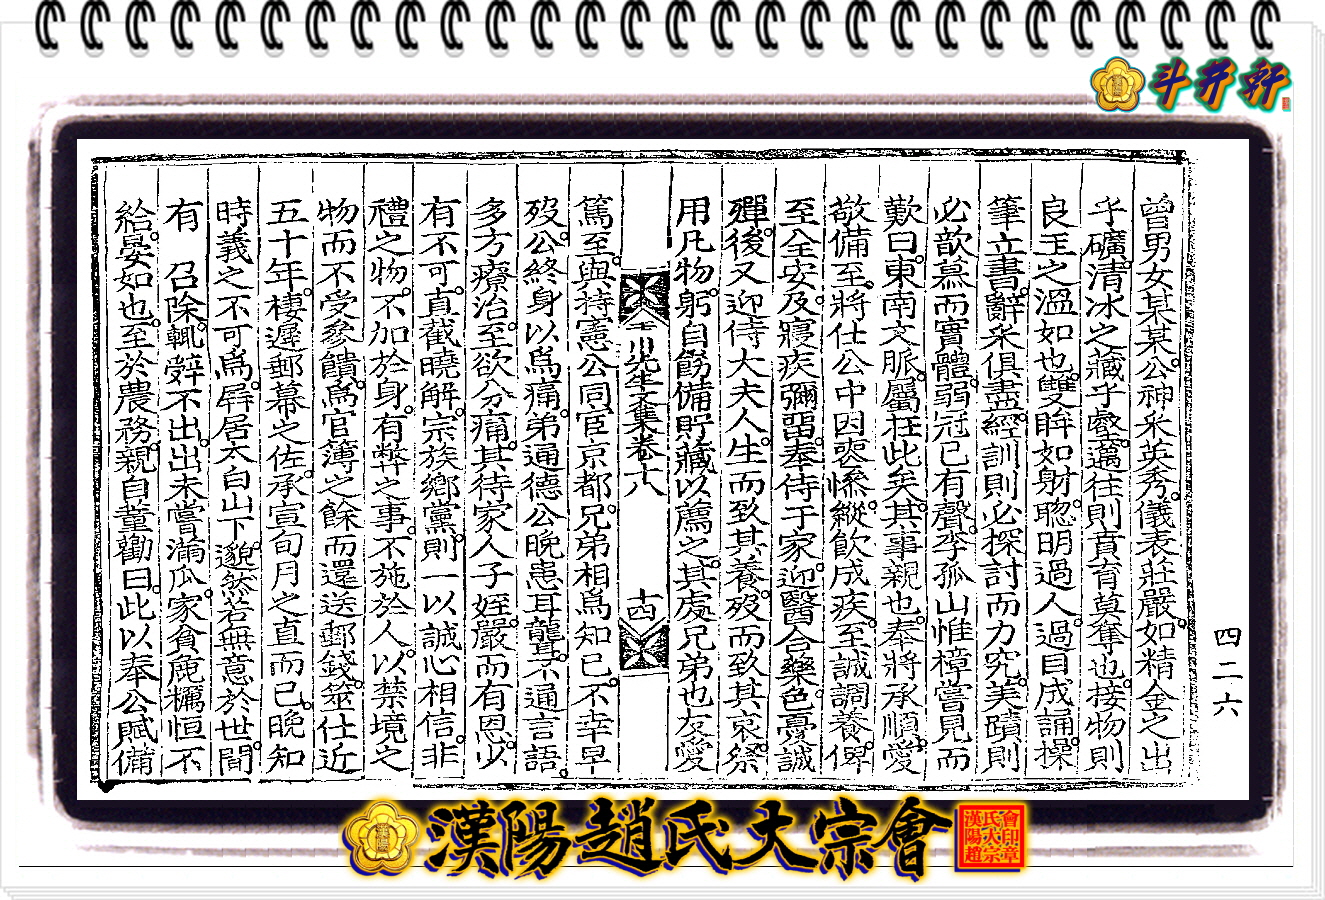 斗井軒
曾男女某某公神采英秀儀表莊嚴如精金之出
乎礦清冰之藏乎壑邁往則賁育莫奪也接物則
良玉之溫如也雙眸如射聰明過人過目成誦操
筆立書辭采俱盡經訓則必探討而力究美蹟則
必歆慕而實體弱冠已有聲李孤山惟樟嘗見而
歎曰東南文脈屬在此矣其事親也奉將承順愛
敬備至將仕公中因喪慘縱飮成疾至誠調養俾
至全安及寢疾彌留奉侍于家迎醫合藥色憂誠
殫後又迎侍大夫人生而致其養歿而致其哀祭
用凡物躬自飭備貯藏以薦之其處兄弟也友愛
玉川先生文集卷十八
十四
篤至與持憲公同宦京都兄弟相爲知已不幸早
歿公終身以爲痛弟通德公晩患耳聾不通言語
多方療治至欲分痛其待家人子姪嚴而有恩以
有不可直截曉解宗族鄕黨則一以誠心相信非
禮之物不加於身有弊之事不施於人以禁境之
物而不受參饋爲官簿之餘而還送郵錢筮仕近
五十年棲遲郵幕之佐承宣旬月之直而已晩知
時義之不可爲屛居太白山下邈然若無意於世間
有 召除輒辭不出出未嘗滿瓜家貧麁糲恒不
給晏如也至於農務親自董勸曰此以奉公賦備
四二六
漢陽趙氏大宗會
漢陽趙氏大宗會印章